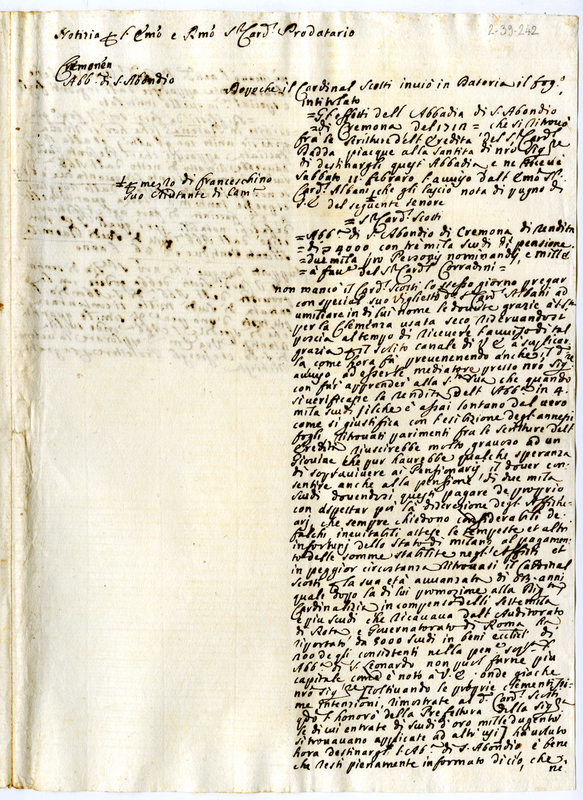 2-39-242
Notizia p l'Emo e Rmo Sr Card. Prodatario
Cremonen
Abb.a di S. Abondio
Doppo che il Cardinal Scotti inviò in Dataria il fog.o
intitolato
=Gl'effetti dell'Abbadia di S. Abondio
=di Cremona del 1712= che si ritrovò
fra le scritture dell'Eredità del Sr Card.
Dadda piacque alla Santità di Nro Sig.re
di destinargli quest'Abbadia, e ne riceve
Sabbato 11 febraro l'avviso dall'Emo Sr
Card. Albani, che gli lasciò nota di pugno di
S.E. del seguente tenore
p mezzo di franceschino
suo Aiutante di Cam.a
=Sr Card. Scotti
=Abb.a di S. Abondio di Cremona di rendita
=di 4000 con tremila scudi di pensione
=due mila pro Personis nominandis, e mille
=a fav.e del Sr Card. Corradini=
non mancò il Card. Scotti lo stesso giorno pregar
con special suo viglietto il Sr Card. Albani ad
umiliare in di lui nome le dovute grazie a
per la Clemenza usata seco riservandosi
poscia al tempo di ricevere l'avviso di tal
grazia p il solito canale di V.E. a supplicar
la come hora fà prevenendo anche il
avviso ad essere mediatore presso Nro Sig.re
con far apprender alla S.tà Sua che quando
si verificasse la rendita dell'Abb.a in 4
mila scudi, il che è assai lontano dal vero
come si giustifica con l'esibizione degl'annessi
fogli ritrovati parimenti fra le scritture dell'
Eredità riuscirebbe molto gravoso ad un
Giovine che pur havrebbe qualche speranza
di sopravivere ai Pensionarij il dover con-
sentire anche alla pensione di due mila
scudi dovendosi questi pagare de proprio
con aspettar poi la discrezione degl'Affittu-
arj che sempre chiedono considerabili de-
falchi inevitabili attese le tempeste et altri
infortunj dello Stato di Milano al pagamen-
to delle somme stabilite negl'Affitti et
in peggior circostanza ritrovasi il Cardinal
Scotti p la sua età avvanzata di anni
quale doppo la di lui promozione alla Dig.tà
Cardinalizia in compenso delli settemila
e più scudi che ricavava dall'Auditorato
di Rota, e Governatorato di Roma ha
riportato da 3000 scudi in beni ecclici di
700 degli consistenti nella pen. sopra l'
Abb.a di S. Leonardo non può farne più
capitale come è noto a V.E. onde giache
Nro Sig.re coltivando le proprie clementissi-
me intenzioni, rimostrate al d.o Card. Scotti
qdo l'honorò della Prefettura della Sig.ra
le di cui entrate di scudi d'oro mille dugento
si trovavano applicate ad altri usi, ha voluto
hora destinargli l'Ab.a di S. Abondio è bene
che resti pienamente informato di ciò, che
ne